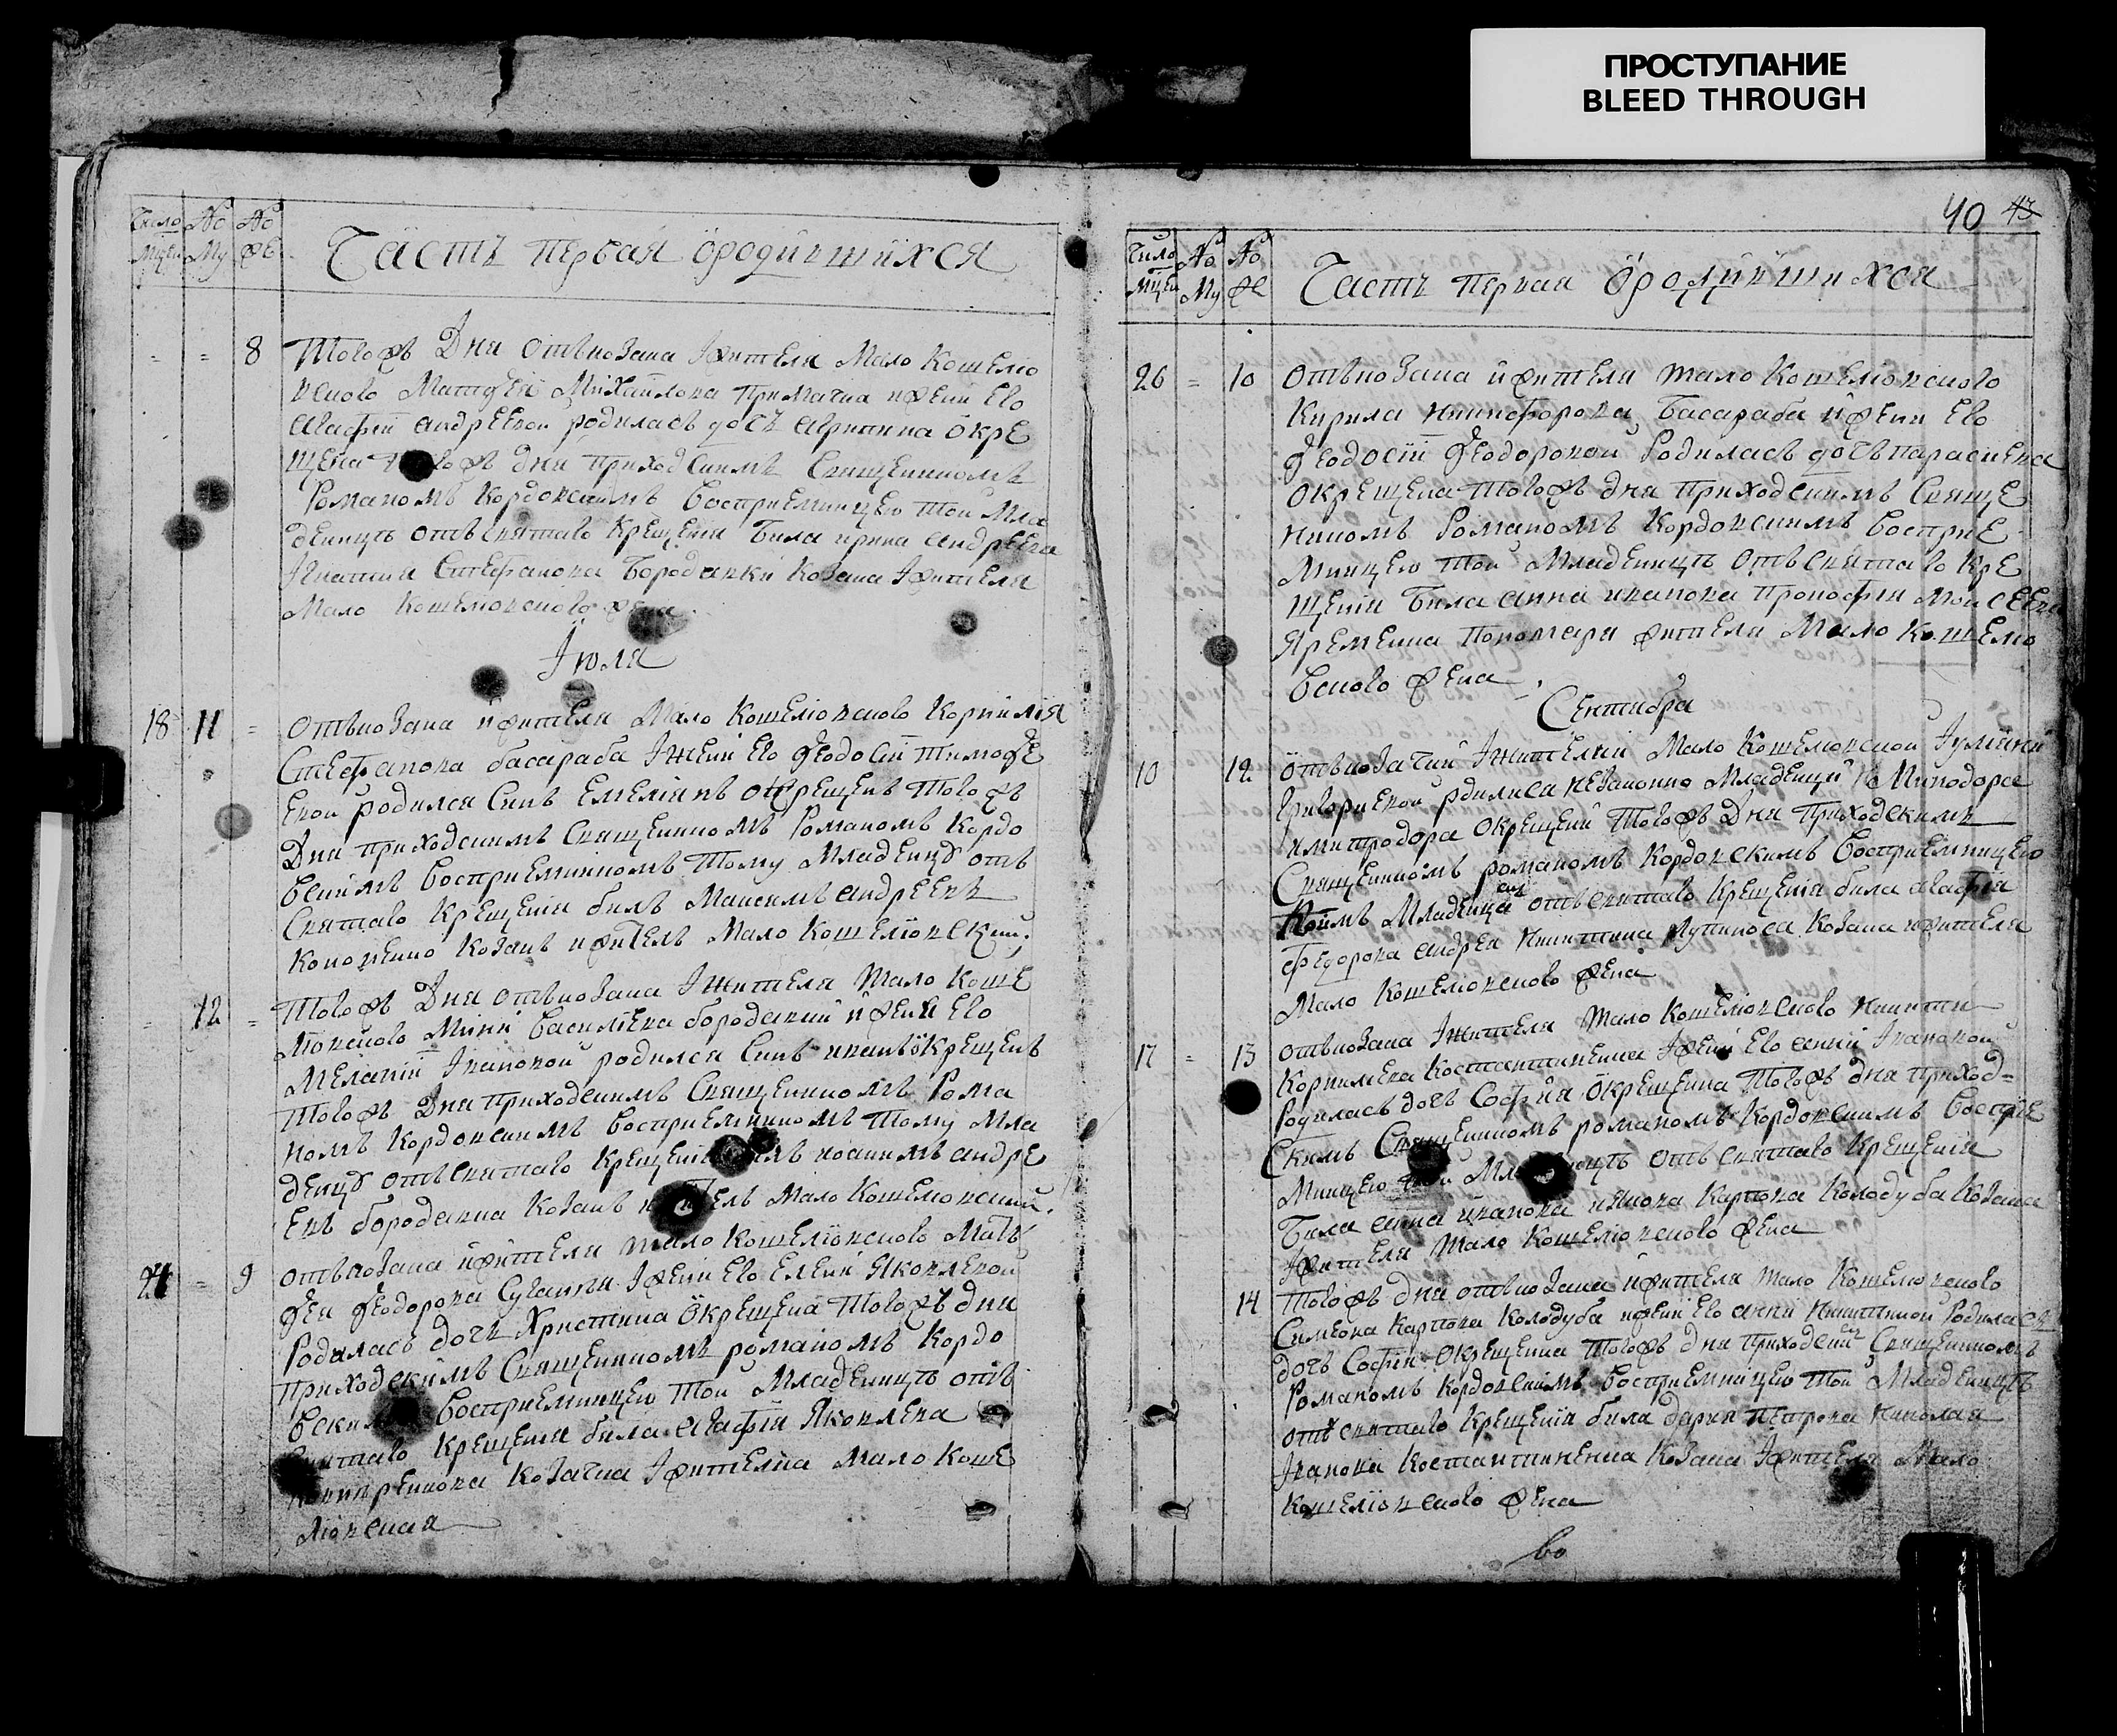 ПРОСТУПАНИЕ
BLEED THROUGH
40 43
Число Мцей
№ Му
№ Же
Часть первая ородившихся
8 Тогожъ Дня отъкозака Iжителя Мало Кошелю
вского Матфея Михайлова Примача ижени Его
Агафiи андрЕЕвои родилась дочъ агрипина окрЕ
щЕна тогожъ дня приходскимъ Священникомъ
Романомъ Кордовскимъ Восприемницею тои Мла
деницъ отъ святаго Крещения Била ирина андрЕЕва
Игнатия Стефанова Бородавки Козака Iжителя
Мало Кошелювского жена
Июля
18 11 отъкозака ижителя Мало Кошелiовского Корнилiя
Стефанова басараба Iжени Его Феодосiи тимофЕ
Евои родился Синъ ЕмЕлiянъ окрещенъ Тогожъ
Дня приходскимъ Священникомъ Романомъ Кордо
вскимъ Восприемникомъ Тому Младенцу отъ
Святаго Крещения билъ Максимъ андрЕЕвъ
Кононенко Козакъ ижитель Мало Кошелiовский.
12 Тогожъ Дня отъкозака Iжителя Мало КошЕ
лювского Мини Василiева бородавки ижени Его
Меланiи Iвановои родился Синъ иванъ окрещенъ
Тогожъ Дня приходскимъ Священникомъ Рома
номъ Кордовскимъ Восприемникомъ Тому Мла
денцу отъ святаго Крещения билъ иоакимъ андрЕ
Евъ бородавка Козакъ ижитель Мало Кошелювский.
9 отъкозака ижителя Мало Кошелiовского Мат
фея Феодорова Iжени Его Елени Яковлевои
Родилась дочъ Христина окрещена Тогожъ дня
Приходскимъ Священникомъ романомъ Кордо
вскимъ Восприемницею тои Младеницъ отъ
Святаго Крещения била агафiя Яковлева
Козачка Iжителка Мало КошЕ
лювская
Число Мцей
№ Му
№ Же
Часть первая ородившихся
26 10 отъкозака ижителя Мало Кошелювского
Кирила никифорова Басараба ижени Его
Феодосiи Феодоровои Родилась дочъ параскева
окрещена Тогожъ дня Приходскимъ Свяще
никомъ Романомъ Кордовскимъ ВосприЕ
мницею тои Младеницъ отъ святаго КрЕ
щенiи Била анна иванова Прокофия МоисЕЕва
Яременка Пономаря жителя Мало Кошелю
вского жена
Сентябра
10 12 отъкозачки Iжителки Мало Кошелювскои Iулiяни
Григориевои рдилися незаконно Младенци Минодора
имитродора окрещени Тогожъ Дня Приходскимъ
Священникомъ романомъ Кордовскимъ Восприемницею
Младенцамъ отъ святаго Крещения била агафiя
Федорова андрея Никитина Козака ижителя
Мало Кошелювского жена
17 13 отъкозака Iжителя Мало Кошелювского Никити
Корнилiева Костантиненка Iжени Его анни Iвановои
Родилась дочъ Софiя окрещенна Тогожъ дня приход=
Скимъ Священникомъ романомъ Кордовскимъ Восприе
мницею тои Младеницъ отъ святаго Крещения
Била анна иванова якова Карпова Колодуба Козака
Iжителя Мало Кошелювского жена
14 Тогожъ дня отъкозака ижителя Мало Кошелювского
Симеона Карпова Колодуба ижени Его анни Никитинои Родилась
дочъ Софiя окрещенна Тогожъ дня приходским Священникомъ
Романомъ Кордовскимъ Восприемницею тои Младеницъ
отъ святаго Крещенiя била дария петрова Николая
Iванова Костантиненка Козака Iжителя Мало
Кошелiовского жена
во